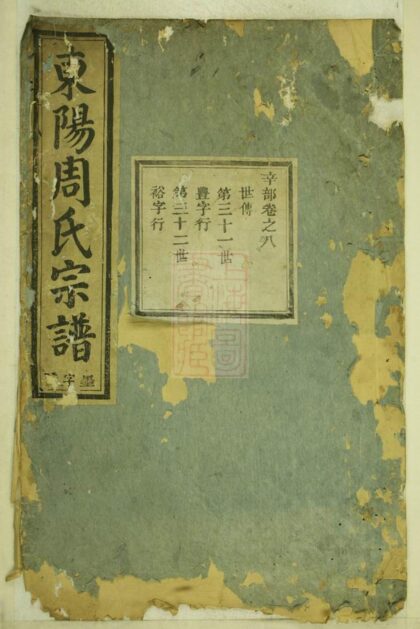 東陽周氏宗譜
字墨
辛部卷之八
世傳
第三十一世
豊字行
第三十二世
裕字行